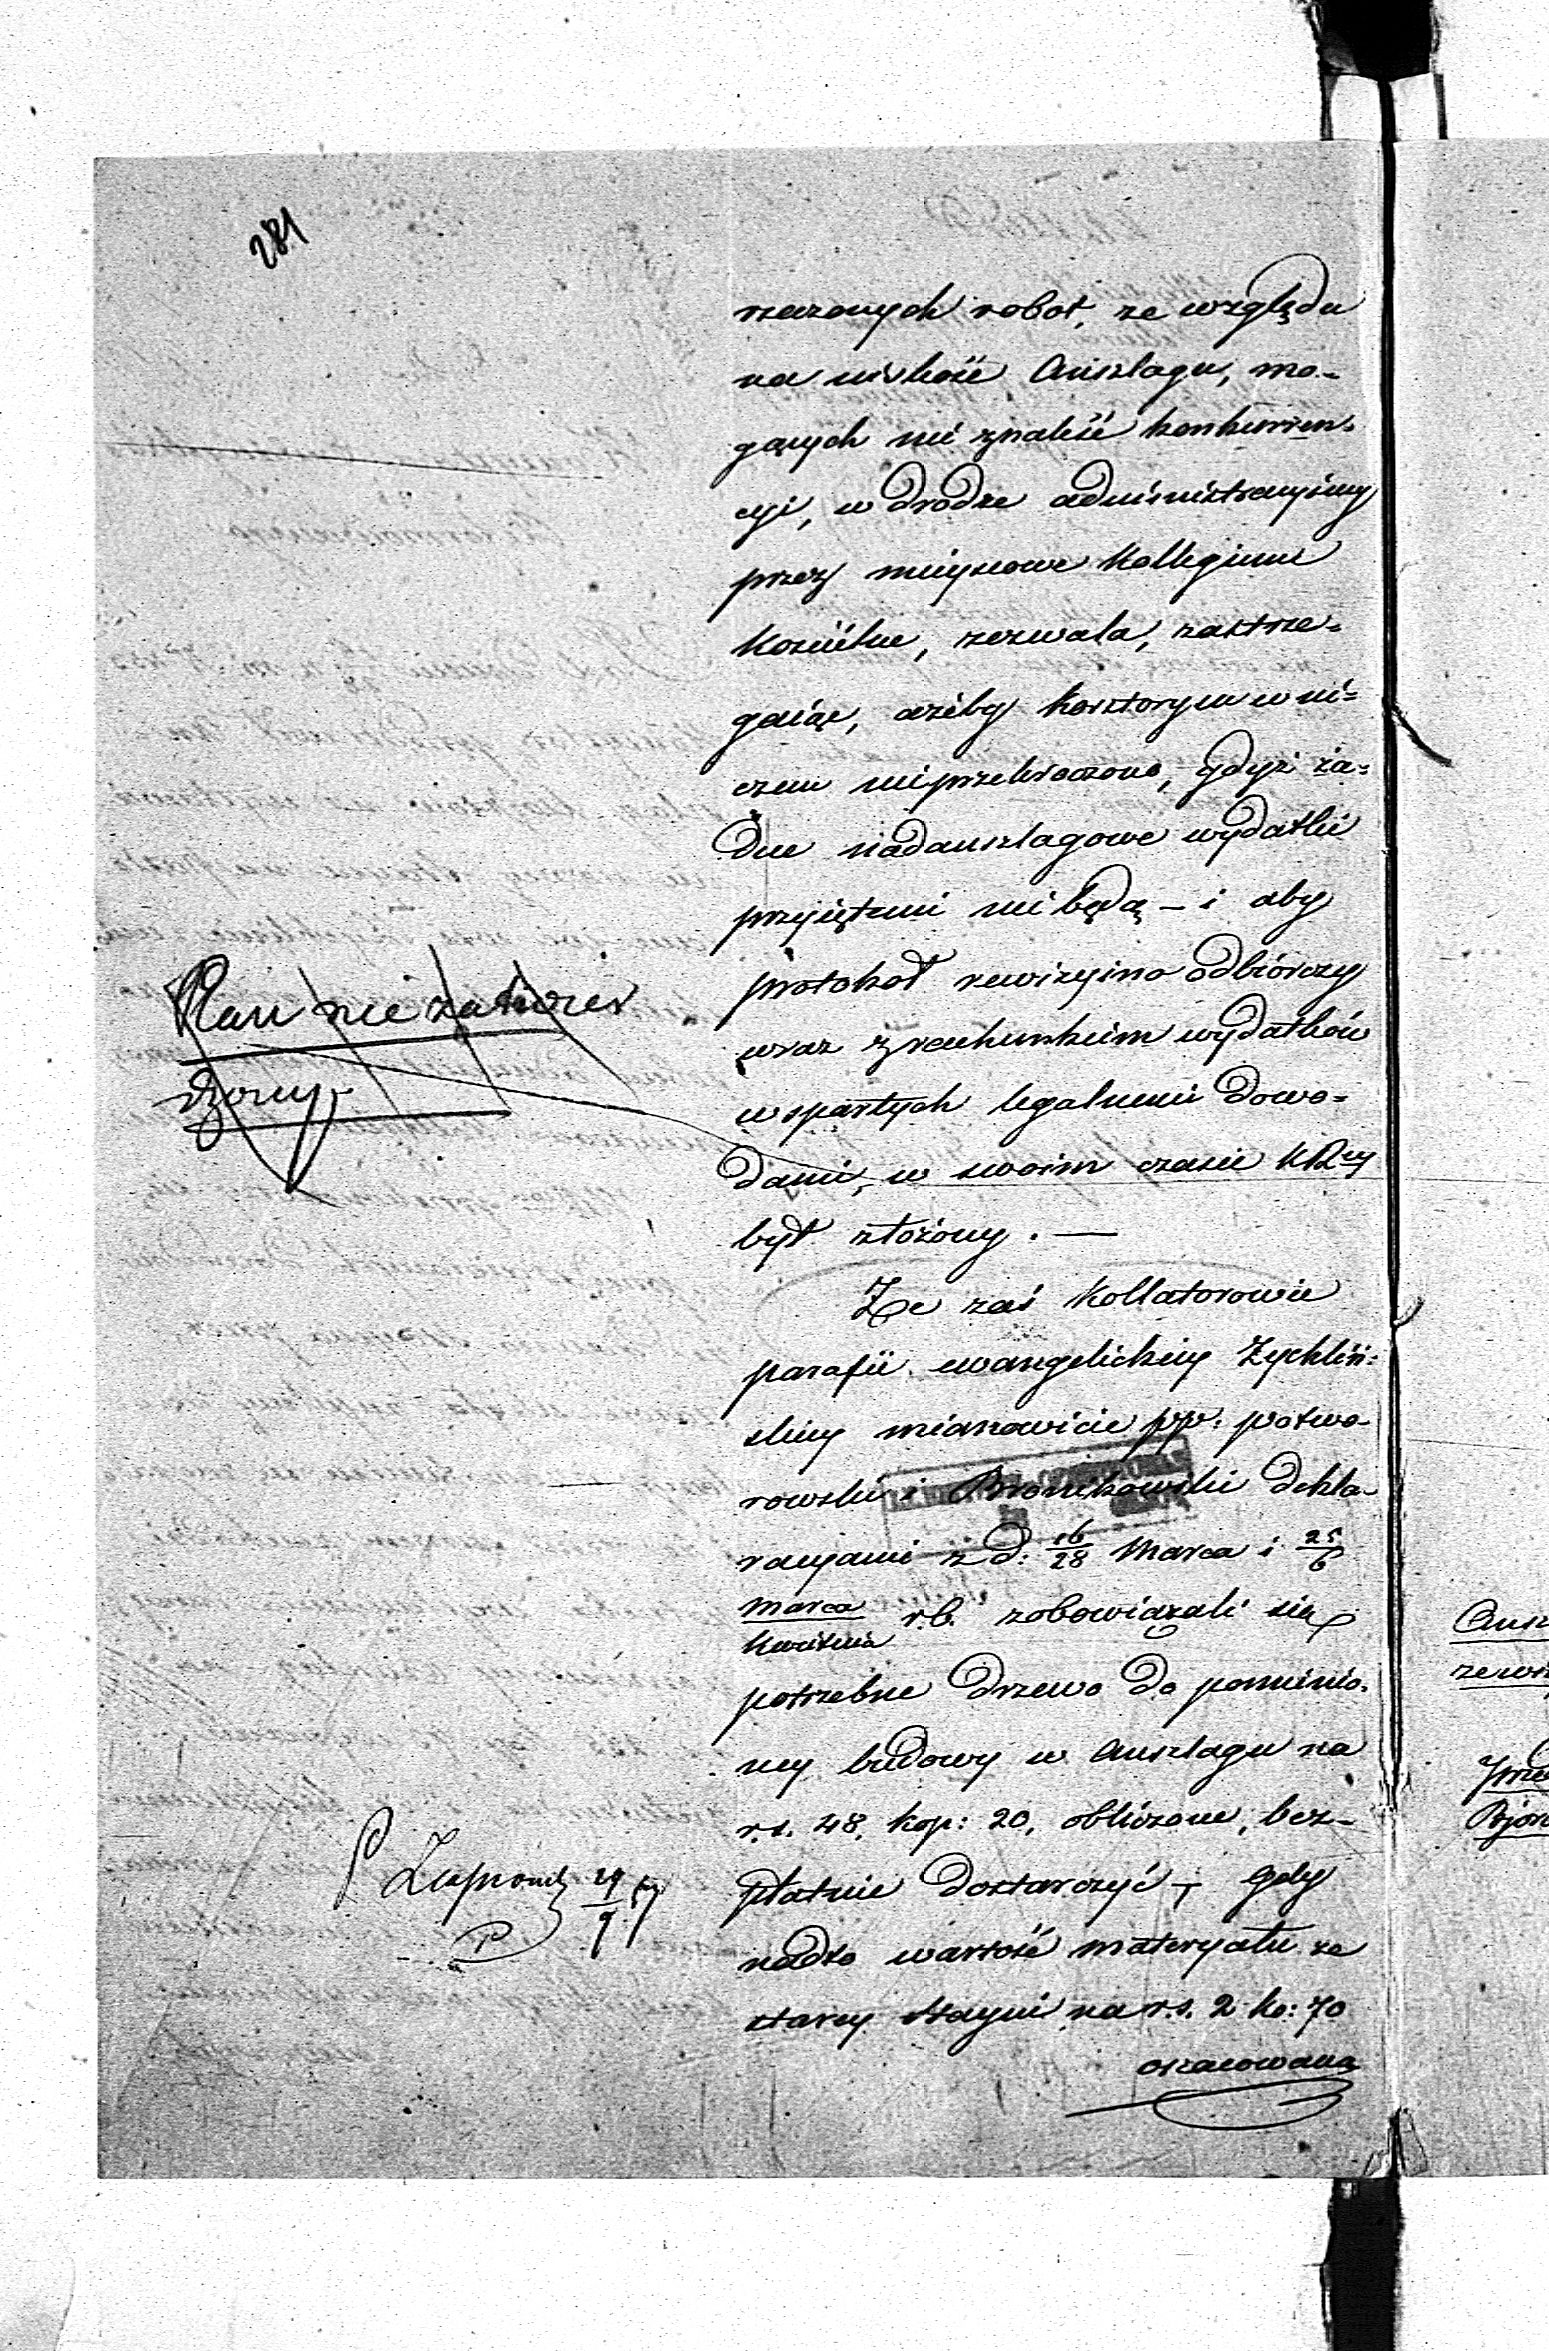 281
rzeczonych robot, ze względu
na niskość Anszlagu, mo-
gących nie znaleść konkurren-
cyi, w drodze administracyjney
przez mieyscowe Kollegium
Kościelne, zezwala, zastrze-
gaiąc, ażeby kosztorysu w ni-
czem nieprzekroczono, gdyż ża-
dne nadanszlagowe wydatki
przyjętemi nie będą – i aby
protokoł rewizyjno odbiórczy
wraz z rachunkiem wydatków
wspartych legalnemi dowo-
dami, w swoim czasie KRcy
był złożony. —
Że zaś Kollatorowie
parafii ewangelickiey Żychliń-
skiey mianowicie pp: Potwo-
rowski i Bronikowski dekla-
racyami z d: 16/28 Marca i 25/6
Marca/Kwietnia r.b. zobowiązali się
potrzebne drzewo do pomienio-
ney budowy w Anszlagu na
r.s. 48, kop: 20, obliczone, bez-
płatnie dostarczyć – gdy
nadto wartość materyału ze
starey stayni na r.s. 2 ko: 70
oszacowana
Plan nie zatwier
dzony
29/9 57
Ansz
zewr